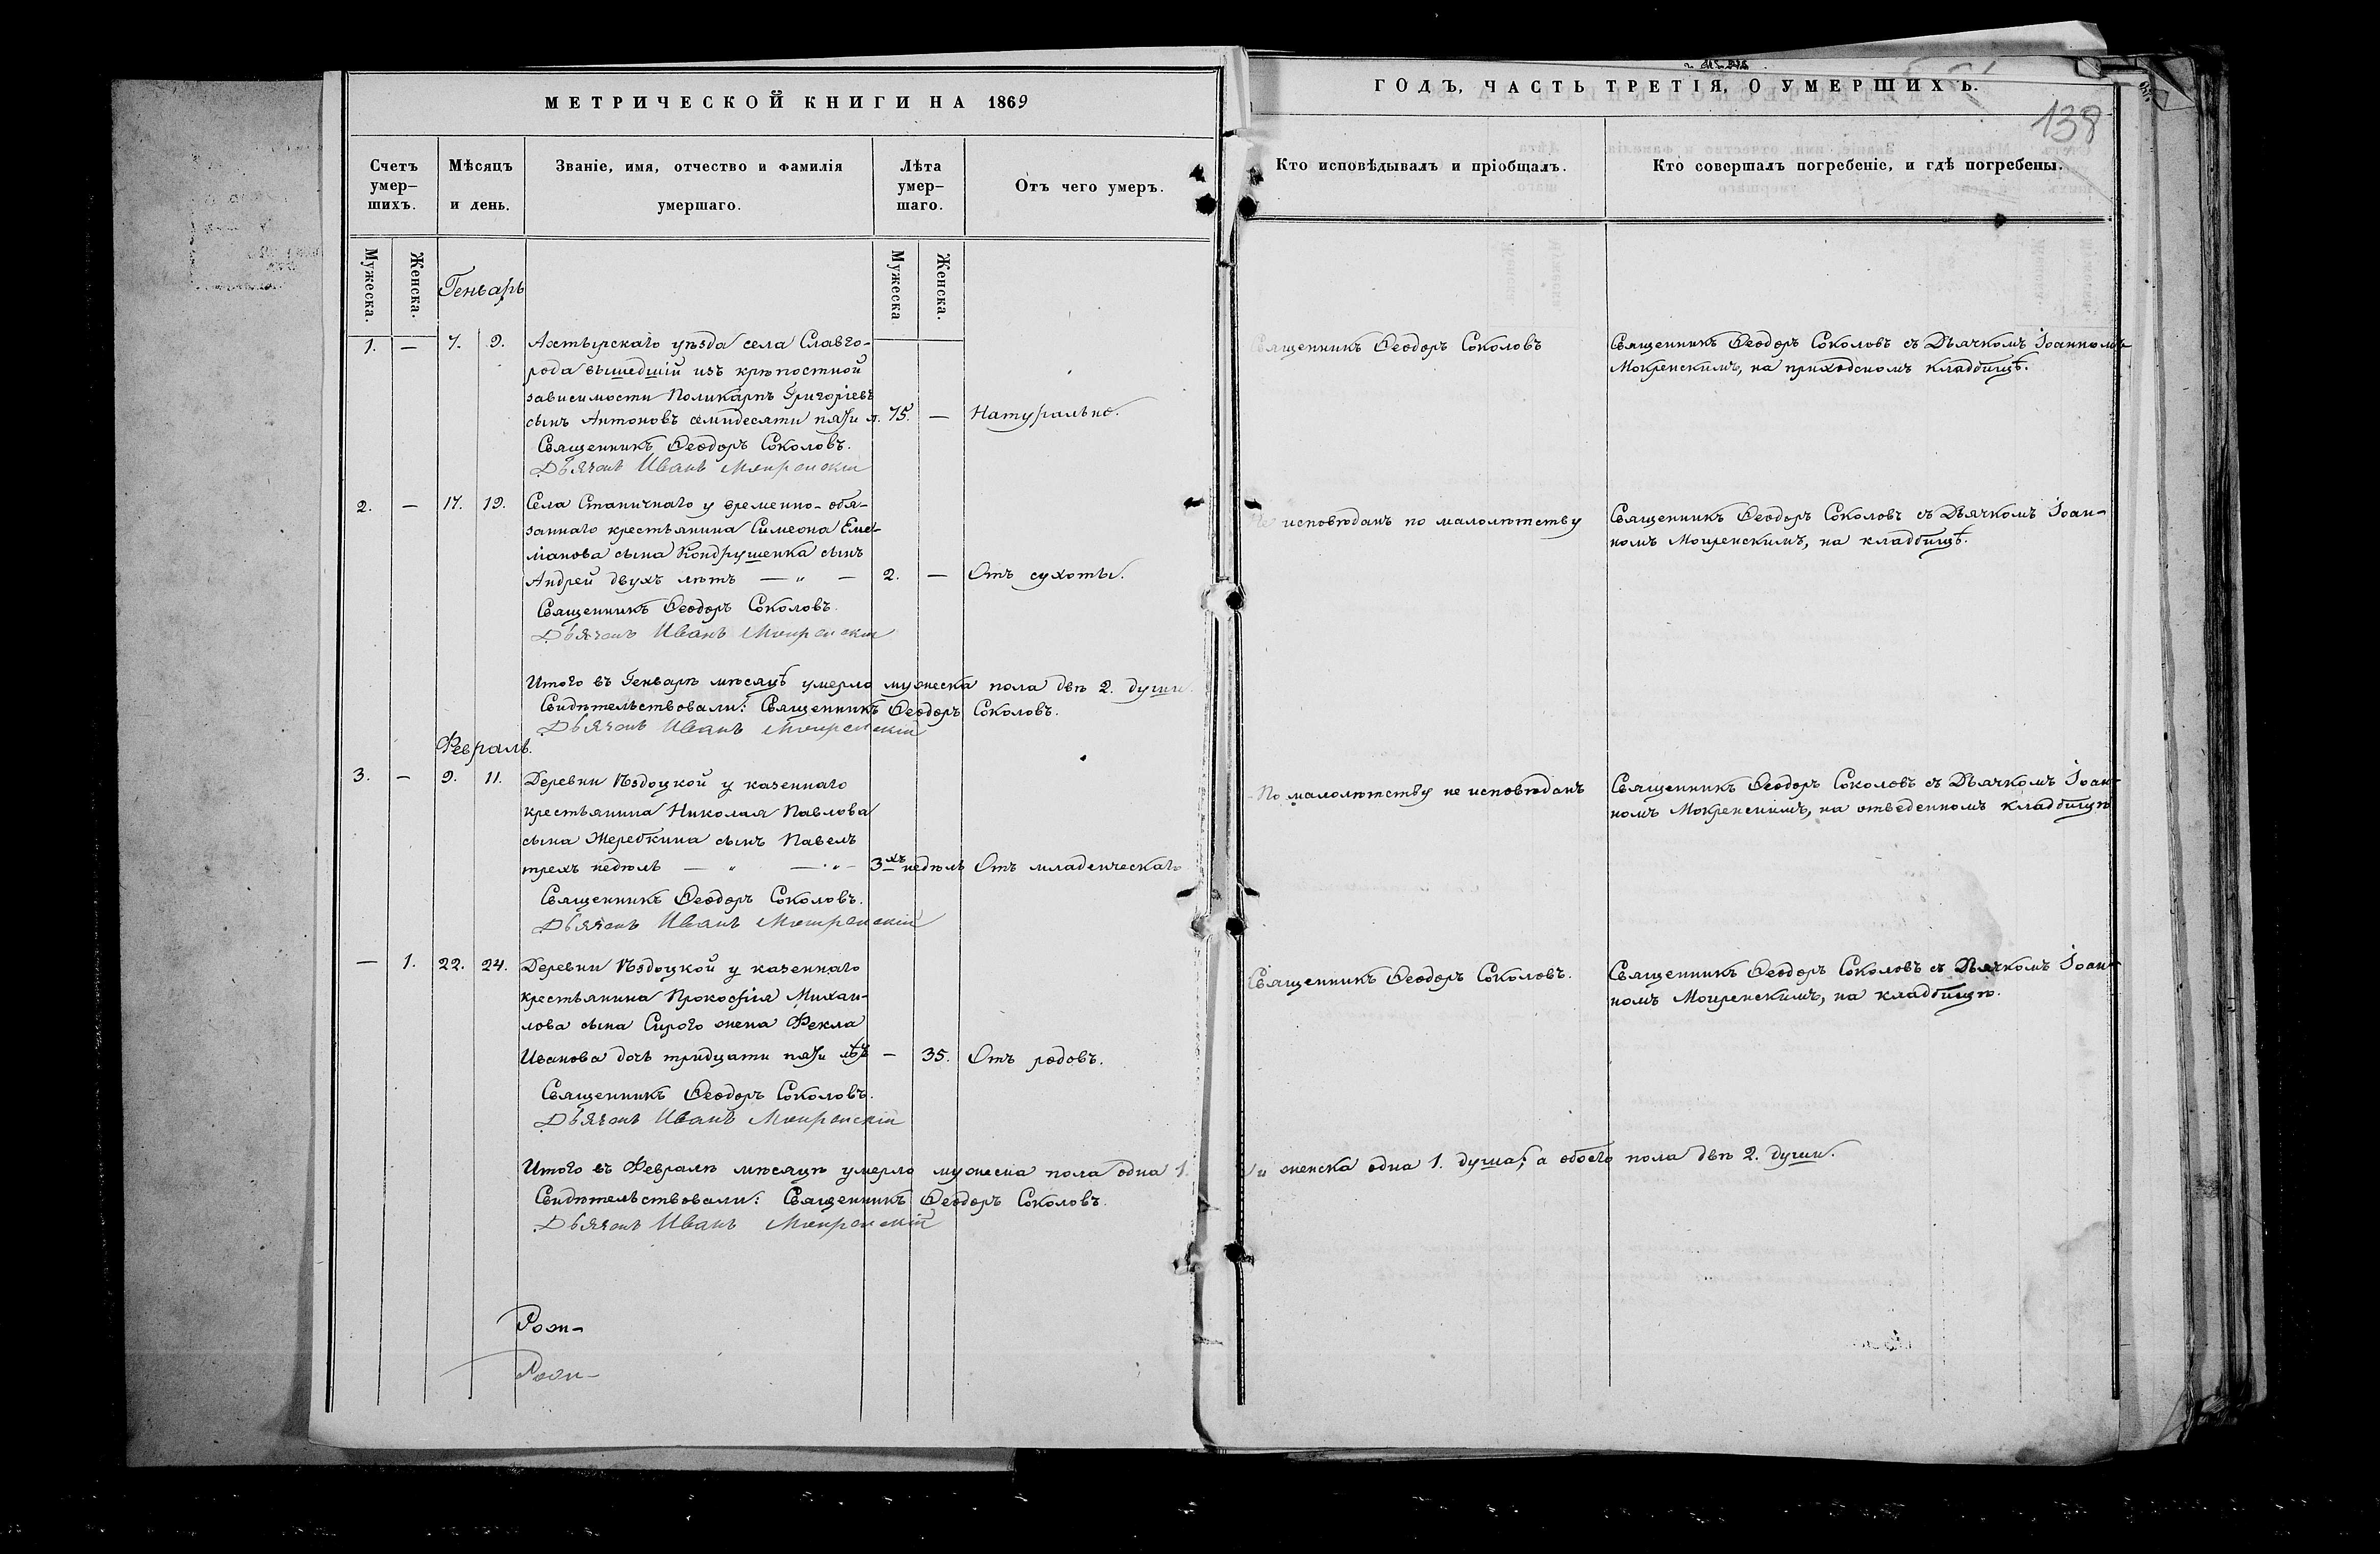 МЕТРИЧЕСКОЙ КНИГИ НА 1869
Счетъ умер-шихъ.
Мѣсяцъ и день.
Званіе, имя, отчество и фамилія умершаго.
Лѣта умер-шаго.
Отъ чего умеръ.
Мужеска.
Женска.
Генварь
Мужеска
Женска.
1. — 7. 9. Ахтырскаго уѣзда села Славго-
рода вышедшій изъ крѣпостной
зависимости Поликарпъ Григоріевъ
сынъ Антоновъ семидесяти пяти л. 75. — Натурально.
Священникъ Ѳеодоръ Соколовъ.
Дьячокъ Иванъ Мокренскій
2. — 17. 19. Села Станичнаго у временно-обя-
заннаго крестьянина Симеона Еме-
ліанова сына Кондрушенка сынъ
Андрей двухъ лѣтъ — „ — 2. — Отъ сухоты.
Священникъ Ѳеодоръ Соколовъ.
Дьячокъ Иванъ Мокренскій
Итого въ Генварѣ мѣсяцѣ умерло мужеска пола двѣ 2. души.
Свидѣтельствовали: Священникъ Ѳеодоръ Соколовъ.
Дьячокъ Иванъ Мокренскій
Февраль.
3. — 9. 11. Деревни Ѣздоцкой у казеннаго
крестьянина Николая Павлова
сына Жеребкина сынъ Павелъ
трехъ недѣль — „ — „ — 3хъ недѣль Отъ младенческаго
Священникъ Ѳеодоръ Соколовъ.
Дьячокъ Иванъ Мокренскій
— 1. 22. 24. Деревни Ѣздоцкой у казеннаго
крестьянина Прокофія Михаи-
лова сына Сирого жена Фекла
Иванова дочь тридцати пяти лѣтъ — 35. Отъ родовъ.
Священникъ Ѳеодоръ Соколовъ.
Дьячокъ Иванъ Мокренскій
Итого въ Февралѣ мѣсяцѣ умерло мужеска пола одна 1.
Свидѣтельствовали: Священникъ Ѳеодоръ Соколовъ.
Дьячокъ Иванъ Мокренскій
ГОДЪ, ЧАСТЬ ТРЕТІЯ, О УМЕРШИХЪ.
138
Кто исповѣдывалъ и пріобщалъ.
Кто совершалъ погребеніе, и гдѣ погребены.
Священникъ Ѳеодоръ Соколовъ
Священникъ Ѳеодоръ Соколовъ съ Дьячкомъ Іоанномъ
Мокренскимъ, на приходскомъ кладбищѣ.
Не исповѣданъ по малолѣтству
Священникъ Ѳеодоръ Соколовъ съ Дьячкомъ Іоан-
номъ Мокренскимъ, на кладбищѣ.
По малолѣтству не исповѣданъ
Священникъ Ѳеодоръ Соколовъ съ Дьячкомъ Іоан-
номъ Мокренскимъ, на отведенномъ кладбищѣ
Священникъ Ѳеодоръ Соколовъ.
Священникъ Ѳеодоръ Соколовъ съ Дьячкомъ Іоан-
номъ Мокренскимъ, на кладбищѣ.
и женска одна 1. душа; а обоего пола двѣ 2. души.